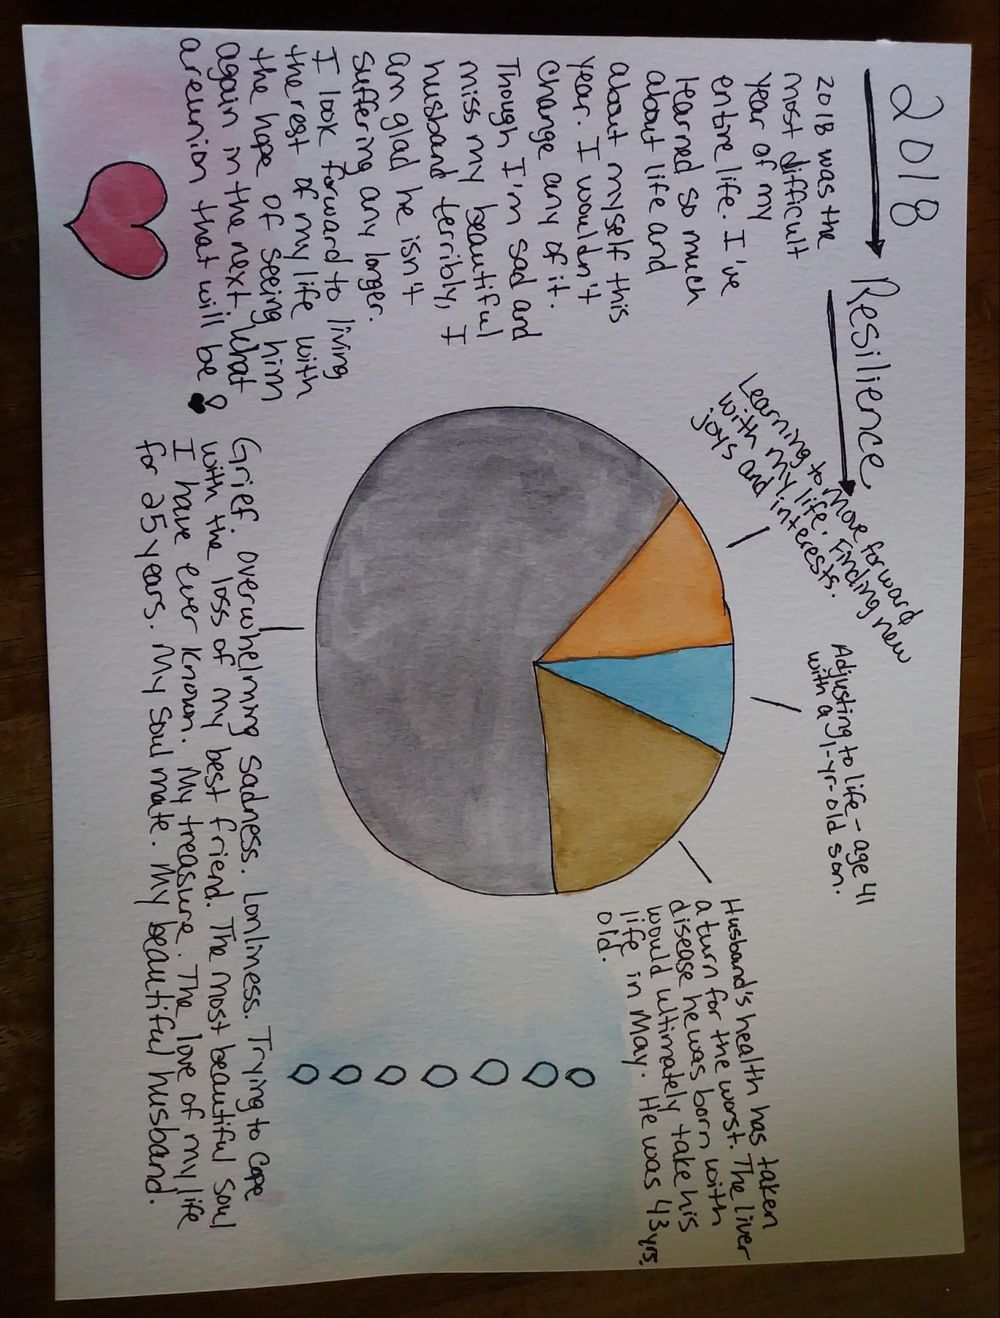 2018
Resilience
2018 was the
most difficult
year of my
entire life. I've
learned so much
about life and
about myself this
year. I wouldn't
change any of it.
Though I'm sad and
miss my beautiful
husband terribly, I
am glad he isn't
suffering any longer.
I look forward to living
the rest of my life with
the hope of seeing him
again in the next. What
a reunion that will be!
Learning to move forward
with my life. Finding new
joys and interests.
Adjusting to life - age 41
with a 1-yr-old son.
Husband's health has taken
a turn for the worst. The liver
disease he was born with
would ultimately take his
life in May. He was 43 yrs.
old.
Grief. overwhelming sadness. Lonliness. Trying to cope
with the loss of my best friend. The most beautiful soul
I have ever known. My treasure. The love of my life
for 25 years. My soul mate. My beautiful husband.